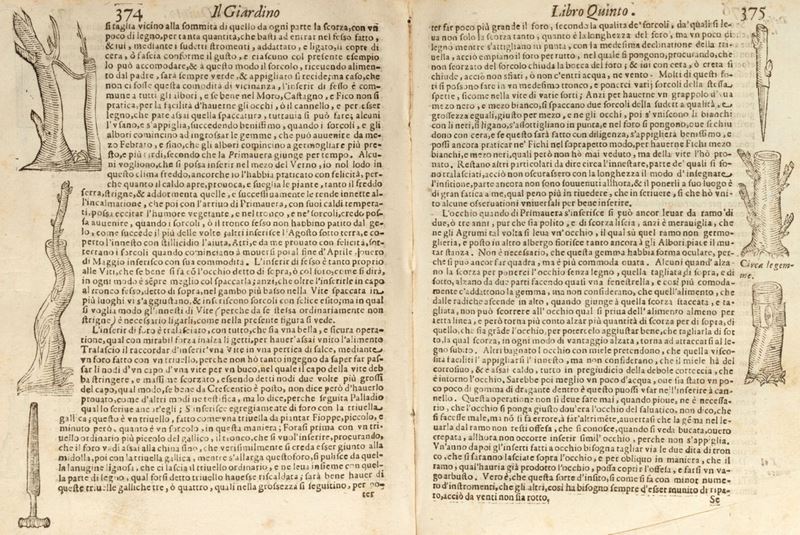 374 Il Giardino
si taglia vicino alla sommità di quello da ogni parte la scorza, con vn
poco di legno, per tanta quantità, che basti ad entrar nel fesso fatto,
& iui, mediante i sudetti stromenti, addattato, e ligato, si copre di
cera, ò fascia conforme il gusto, e ciascuno col presente esempio
lo può accomodare, & à questo modo il sorcolo, riceuendo alimento
dal padre, sarà sempre verde, & appigliato si recide; ma caso, che
non ci fosse quella commodità di vicinanza, l'inserir di fesso è commune
à tutti gli albori, e se bene nel Moro, Castagno, e Fico non si
pratica, per la facilità d'hauerne gli occhi, ò il cannello, e per esser
legno, che pate assai quella spaccatura, tuttauia si può fare, alcuni
l'vsano, e s'appiglia, succedendo benissimo, quando i sorcoli, e gli
albori comincino ad ingrossar le gemme, che può auuenire da mezo
Febraro, e sino, che gli albori comincino a germogliare più presto,
e più tardi, secondo che la Primauera giunge per tempo. Alcuni
vogliono, che si possa inserir nel mezo del Verno, io nol lodo in
questo clima freddo, ancorche io l'habbia praticato con felicità, perche
quanto il caldo apre, prouoca, e sueglia le piante, tanto il freddo
serra, stringe, & addormenta quelle, e successiuamente le rende innette
all'incalmatione, che poi con l'arriuo di Primauera, con suoi caldi temperati,
possa eccitar l'humore vegetante, e nel tronco, e ne' sorcoli, credo possa
auuenire, quando i sorcoli, ò il tronco fesso non habbino patito dal gelo,
come succede il più delle volte: altri inserisce l'Agosto sotto terra, e coperto
l'innesto con stillicidio l'aiuta. Altri, e da me prouato con felicità, sotterrano
i sorcoli quando cominciano à mouersi, e poi al fine d'Aprile, ò verso
di Maggio inseriscon con sia commodità. L'inserir di fesso è tanto proprio
alle Viti, che se bene si fa cō l'occhio detto di sopra, ò col foro, come si dirà,
in ogni modo è sēpre meglio col spaccarla; anzi, che oltre l'inserirle in capo
al tronco fesso, detto di sopra, nel gambo più basso nella Vite spaccata in
più luoghi vi s'aggiustano, & inseriscono sorcoli con felice esito; ma in qual
si voglia modo gl'innesti di Vite (perche da se stessa ordinariamente non
stringe) è necessario ligarli, come nella presente figura si vede.
L'inserir di foro è tralasciato, con tutto, che sia vna bella, e sicura operatione,
qual con mirabil forza inalza li getti, per hauer' assai vnito l'alimento
Tralascio il raccordar d'inserir' vna Vite in vna pertica di salce, mediante
vn foro fatto con vn triuello, perche non hò tanto ingegno da saper far passar
li nodi d'vn capo d'vna vite per vn buco, nel quale il capo della vite debba
stringere, e massimè scorzato, essendo detti nodi due volte più grossi
del capo, qual modo, se bene da Crescentio è posto, non dice però d'hauerlo
prouato, come d'altri modi ne testifica, ma lo dice, perche seguita Palladio
qual lo scriue anc'egli; S'inserisce egregiamente di foro con la triuella
gallica; questo è vn triuello, fatto come vna triuella da piantar Fioppe, piccolo, e
minuto però, quanto è vn sorcolo, in questa maniera; Forasi prima con vn triuello
ordinario più piccolo del gallico, il tronco, che si vuol'inserire, procurando,
che il foro vadi assai alla china sino, che verisimilmente si creda esser giunto alla
midolla, poi con la triuella gallica, mentre s'allarga questo foro, si pulisce da quella
lanugine lignosi, che ci lascia il triuello ordinario, e ne leua insieme con quella
parte di legno, qual forsi detto triuello hauesse riscaldata; sarà bene hauer di
queste triuelle galliche tre, ò quattro, quali nella grossezza si seguitino, per poter
ter
Libro Quinto. 375
ter far poco più grande il foro, secondo la qualità de' sorcoli, da' quali si leua
non solo la scorza tanto, quanto è la longhezza del foro, ma vn poco di
legno mentre s'attigliano in punta, con la medesima declinatione della triuella,
acciò empiano il foro per tutto, nel quale si pongono, procurando, che
non escorzino il sorcolo della bocca del foro; & iui con cera, ò creta si
chiude, acciò non sfiati, ò non c'entri acqua, ne vento. Molti di questi fori
si possono fare in vn medesimo tronco, e poneruı vati sorcoli della stessa
spetie, ò come nella vite di varie sorti; Anzi per hauerne vn grappolo d'vua
mezo nero, e mezo bianco, si spaccano due sorcoli della sudetta qualità, e
grossezza eguali, giusto per mezo, e ne gli occhi, poi s'vniscono li bianchi
con li neri, si ligano, s'addottigliano in punta, e nel foro si pongono, oue si chiudono
con cera, e questo sarà fatto con diligenza, s'appiglierà benissimo, e
possi ancora praticar ne' Fichi nel sopraposto modo, per hauerne Fichi mezo
bianchi, e mezo neri, quali però non hò mai veduto, ma della vite l'hò prouato.
Restano altri particolari da dire circa l'innestare, parte de' quali si sono
tralasciati, acciò non oscurassero con la longhezza il modo d'insegnare
l'insitione, parte ancora non sono souuenuti all'hora, & il ponerli a suo luogo è
di gran fatica a me, qual peno più in riuedere, che in scriuere, si che hò vnito
alcune osseruationi vniuersali per bene inserire.
L'occhio quando di Primauera s'inserisce si può ancor leuar da ramo di
due, ò tre anni, pur che sia polito, e di scorza liscia, anzi è merauiglia, che
ne gli Agrumi tal volta si leua vn'occhio, il qual sù quel ramo non germoglieria,
e posto in altro albergo fiorisce tanto ancora à gli Albori piace il mutar
stanza. Non è necessario, che questa gemma habbia forma oculare, perche
si può ancor far quadra, ma è più commoda ouata. Alcuni quand'alzano
la scorza per ponerci l'occhio senza legno, quella tagliata di sopra, e di
sotto, alzano da due parti facendo quasi vna fenestrella, e così più comodamente
c'addattono la gemma, ma non considerano, che quell'alimento, che
dalle radici ascende in alto, quando giunge à quella scorza staccata, e tagliata,
non può scorrere all'occhio qual si priua dell'alimento almeno per
tetta linea, e però torna più conto alzar più quantità di scorza per di sopra, di
quello, che sia grāde l'occhio, per potercelo aggiustar bene, che tagliarla di sotto,
la qual scorza, in ogni modo di vantaggio alzata, torna ad attaccarsi al legno
subito. Altri bagnano l'occhio con miele pretendendo, che quella viscosità
faciliti l'appigliarsi l'innesto, ma non considerano, che il miele hà del
corrosiuo, & è assai caldo, tutto in pregiudicio della debole corteccia, che
è intorno l'occhio, Sarebbe poi meglio vn poco d'acqua, oue sia stato vn poco
poco di gomma di dragante dentro e questo puossi vsar nell'inserire à cannello.
Questa operatione non si deue fare mai, quando pioue, ne è necessario,
che l'occhio si ponga giusto dou'era l'occhio del saluatico, non dico, che
si facesse male, ma nō si fa errore, à far'altrimēte, auuertasi che la gēma nel leuarla
dal ramo non resti offesa, che si conosce, quando si vedi bucata, ouero
crepata, allhora non occorre inserir simil'occhio, perche non s'appiglia.
Vn'anno dapoi gl'inserti fatti a occhio bisogna tagliar via le due dita di tronco,
che si faranno lasciate sopra l'occhio, e per obliquo in maniera, che il
ramo, qual hauria già prodotto l'occhio, possa coprir l'offesa, e farsi vn vago
arbusto. Vero è, che questa sorte d'insito, si come si fa con minor numero
d'instromenti, che gli altri, così hà bisogno sempre d'esser munito di riparo,
acciò da venti non sia rotto,
Se
Circa le gemme.